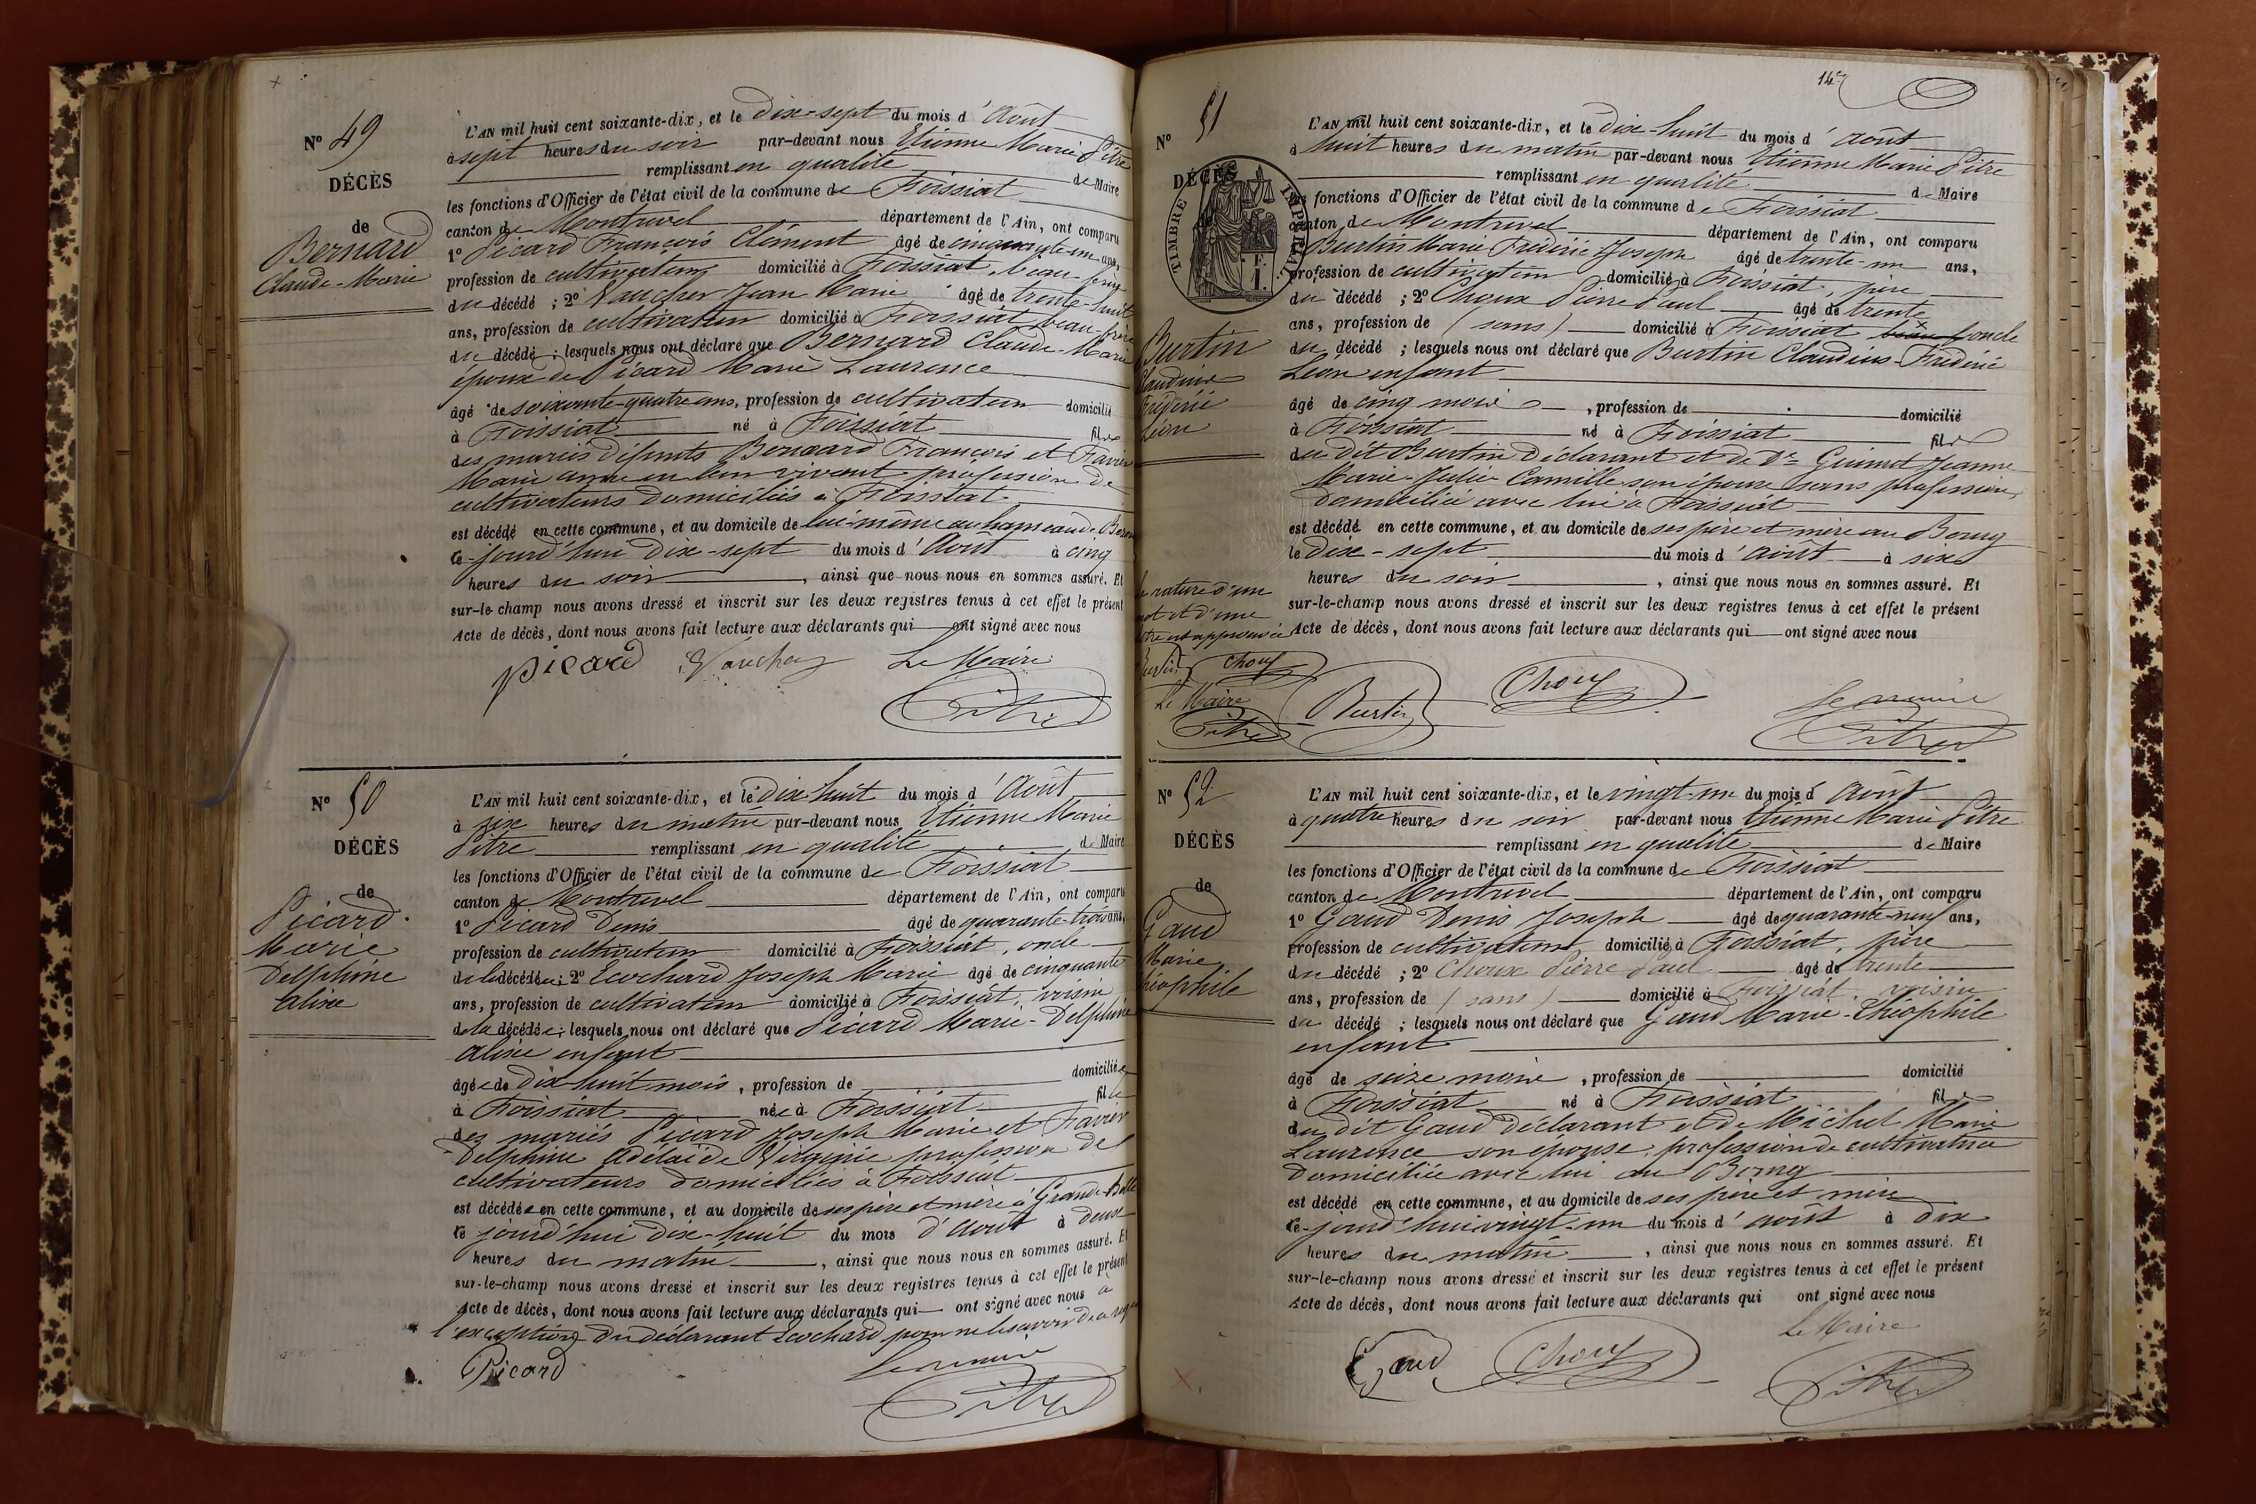 Nº 49
DÉCÈS
de
Bernard
Claude-Marie
L'AN mil huit cent soixante-dix, et le Dix-sept du mois d'Août
à sept heures du soir par-devant nous Etienne Marie Pitre
remplissant en qualité de Maire
les fonctions d'Officier de l'état civil de la commune de Foissiat
canton de Montrevel département de l'Ain, ont comparu
1º Picard François Clément âgé de cinquante-un ans,
profession de cultivateur domicilié à Foissiat, beau-frère
du décédé ; 2º Vaucher Jean Marie âgé de trente-huit
ans, profession de cultivateur domicilié à Foissiat beau-frère
du décédé ; lesquels nous ont déclaré que Bernard Claude-Marie
époux de Picard Marie Laurence
âgé de soixante-quatre ans, profession de cultivateur domicilié
à Foissiat né à Foissiat fils
des mariés défunts Bernard François et Favier
Marie anne en leur vivant profession de
cultivateurs domiciliés à Foissiat
est décédé en cette commune, et au domicile de lui-même au hameau de
ce-jourd'hui dix-sept du mois d'Août à cinq
heures du soir, ainsi que nous nous en sommes assuré. Et
sur-le-champ nous avons dressé et inscrit sur les deux registres tenus à cet effet le présent
Acte de décès, dont nous avons fait lecture aux déclarants qui ont signé avec nous
Picard Vaucher Le Maire
Pitre
Nº 50
DÉCÈS
de
Picard
Marie
Delphine
Aline
L'AN mil huit cent soixante-dix, et le Dix-huit du mois d'Août
à six heures du matin par-devant nous Etienne Marie
Pitre remplissant en qualité de Maire
les fonctions d'Officier de l'état civil de la commune de Foissiat
canton de Montrevel département de l'Ain, ont comparu
1º Picard Denis âgé de quarante-trois ans,
profession de cultivateur domicilié à Foissiat, oncle
de la décédée ; 2º Ecochard Joseph Marie âgé de cinquante
ans, profession de cultivateur domicilié à Foissiat, voisin
de la décédée ; lesquels nous ont déclaré que Picard Marie-Delphine
Aline enfant
âgée de dix-huit mois, profession de domiciliée
à Foissiat née à Foissiat fille
des mariés Picard Joseph Marie et Favier
Delphine Adelaïde Virginie profession de
cultivateurs domiciliés à Foissiat
est décédée en cette commune, et au domicile de ses père et mère à Grande
ce jourd'hui dix-huit du mois d'août à deux
heures du matin, ainsi que nous nous en sommes assuré. Et
sur-le-champ nous avons dressé et inscrit sur les deux registres tenus à cet effet le présent
Acte de décès, dont nous avons fait lecture aux déclarants qui ont signé avec nous à
l'exception du déclarant Ecochard pour ne le savoir de ce requis
Picard Le maire
Pitre
14
Nº 51
DÉCÈS
TIMBRE IMPERIAL
Burtin
Claudius
Frédéric
Léon
L'AN mil huit cent soixante-dix, et le Dix-huit du mois d'Août
à huit heures du matin par-devant nous Etienne Marie Pitre
remplissant en qualité de Maire
les fonctions d'Officier de l'état civil de la commune de Foissiat
canton de Montrevel département de l'Ain, ont comparu
Burtin Marie Frédéric Joseph âgé de trente-un ans,
profession de cultivateur domicilié à Foissiat, père
du décédé ; 2º Choux Pierre Paul âgé de trente
ans, profession de (sans) domicilié à Foissiat oncle
du décédé ; lesquels nous ont déclaré que Burtin Claudius-Frédéric
Léon enfant
âgé de cinq mois, profession de domicilié
à Foissiat né à Foissiat fils
du dit Burtin déclarant et de De Guimet Jeanne
Marie-Julie Camille son épouse sans profession
domiciliée avec lui à Foissiat
est décédé en cette commune, et au domicile de ses père et mère au Bourg
le dix-sept du mois d'août à six
heures du soir, ainsi que nous nous en sommes assuré. Et
sur-le-champ nous avons dressé et inscrit sur les deux registres tenus à cet effet le présent
Acte de décès, dont nous avons fait lecture aux déclarants qui ont signé avec nous
la rature d'un
mot et d'une
lettre est approuvée
Burtin Choux
Le Maire
Pitre
Burtin Choux Le maire
Pitre
Nº 52
DÉCÈS
de
Gaud
Marie
Théophile
L'AN mil huit cent soixante-dix, et le vingt-un du mois d'Août
à quatre heures du soir par-devant nous Etienne Marie Pitre
remplissant en qualité de Maire
les fonctions d'Officier de l'état civil de la commune de Foissiat
canton de Montrevel département de l'Ain, ont comparu
1º Gaud Denis Joseph âgé de quarante-neuf ans,
profession de cultivateur domicilié à Foissiat, père
du décédé ; 2º Choux Pierre Paul âgé de trente
ans, profession de (sans) domicilié à Foissiat, voisin
du décédé ; lesquels nous ont déclaré que Gaud Marie-Théophile
enfant
âgé de seize mois, profession de domicilié
à Foissiat né à Foissiat fils
du dit Gaud déclarant et de Michel Marie
Laurence son épouse, profession de cultivatrice
domiciliée avec lui au Bourg
est décédé en cette commune, et au domicile de ses père et mère
ce-jourd'hui vingt-un du mois d'août à dix
heures du matin, ainsi que nous nous en sommes assuré. Et
sur-le-champ nous avons dressé et inscrit sur les deux registres tenus à cet effet le présent
Acte de décès, dont nous avons fait lecture aux déclarants qui ont signé avec nous
Le Maire
Gaud Choux Pitre